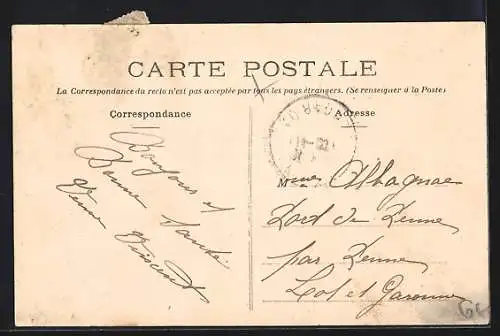 CARTE POSTALE
La Correspondance du recto n'est pas acceptée par tous les pays étrangers. (Se renseigner à la Poste)
Correspondance
Adresse
Bonjour et
Bonne Santé
Veuve Vincent
Mme Albagnac
par
Lot et Garonne